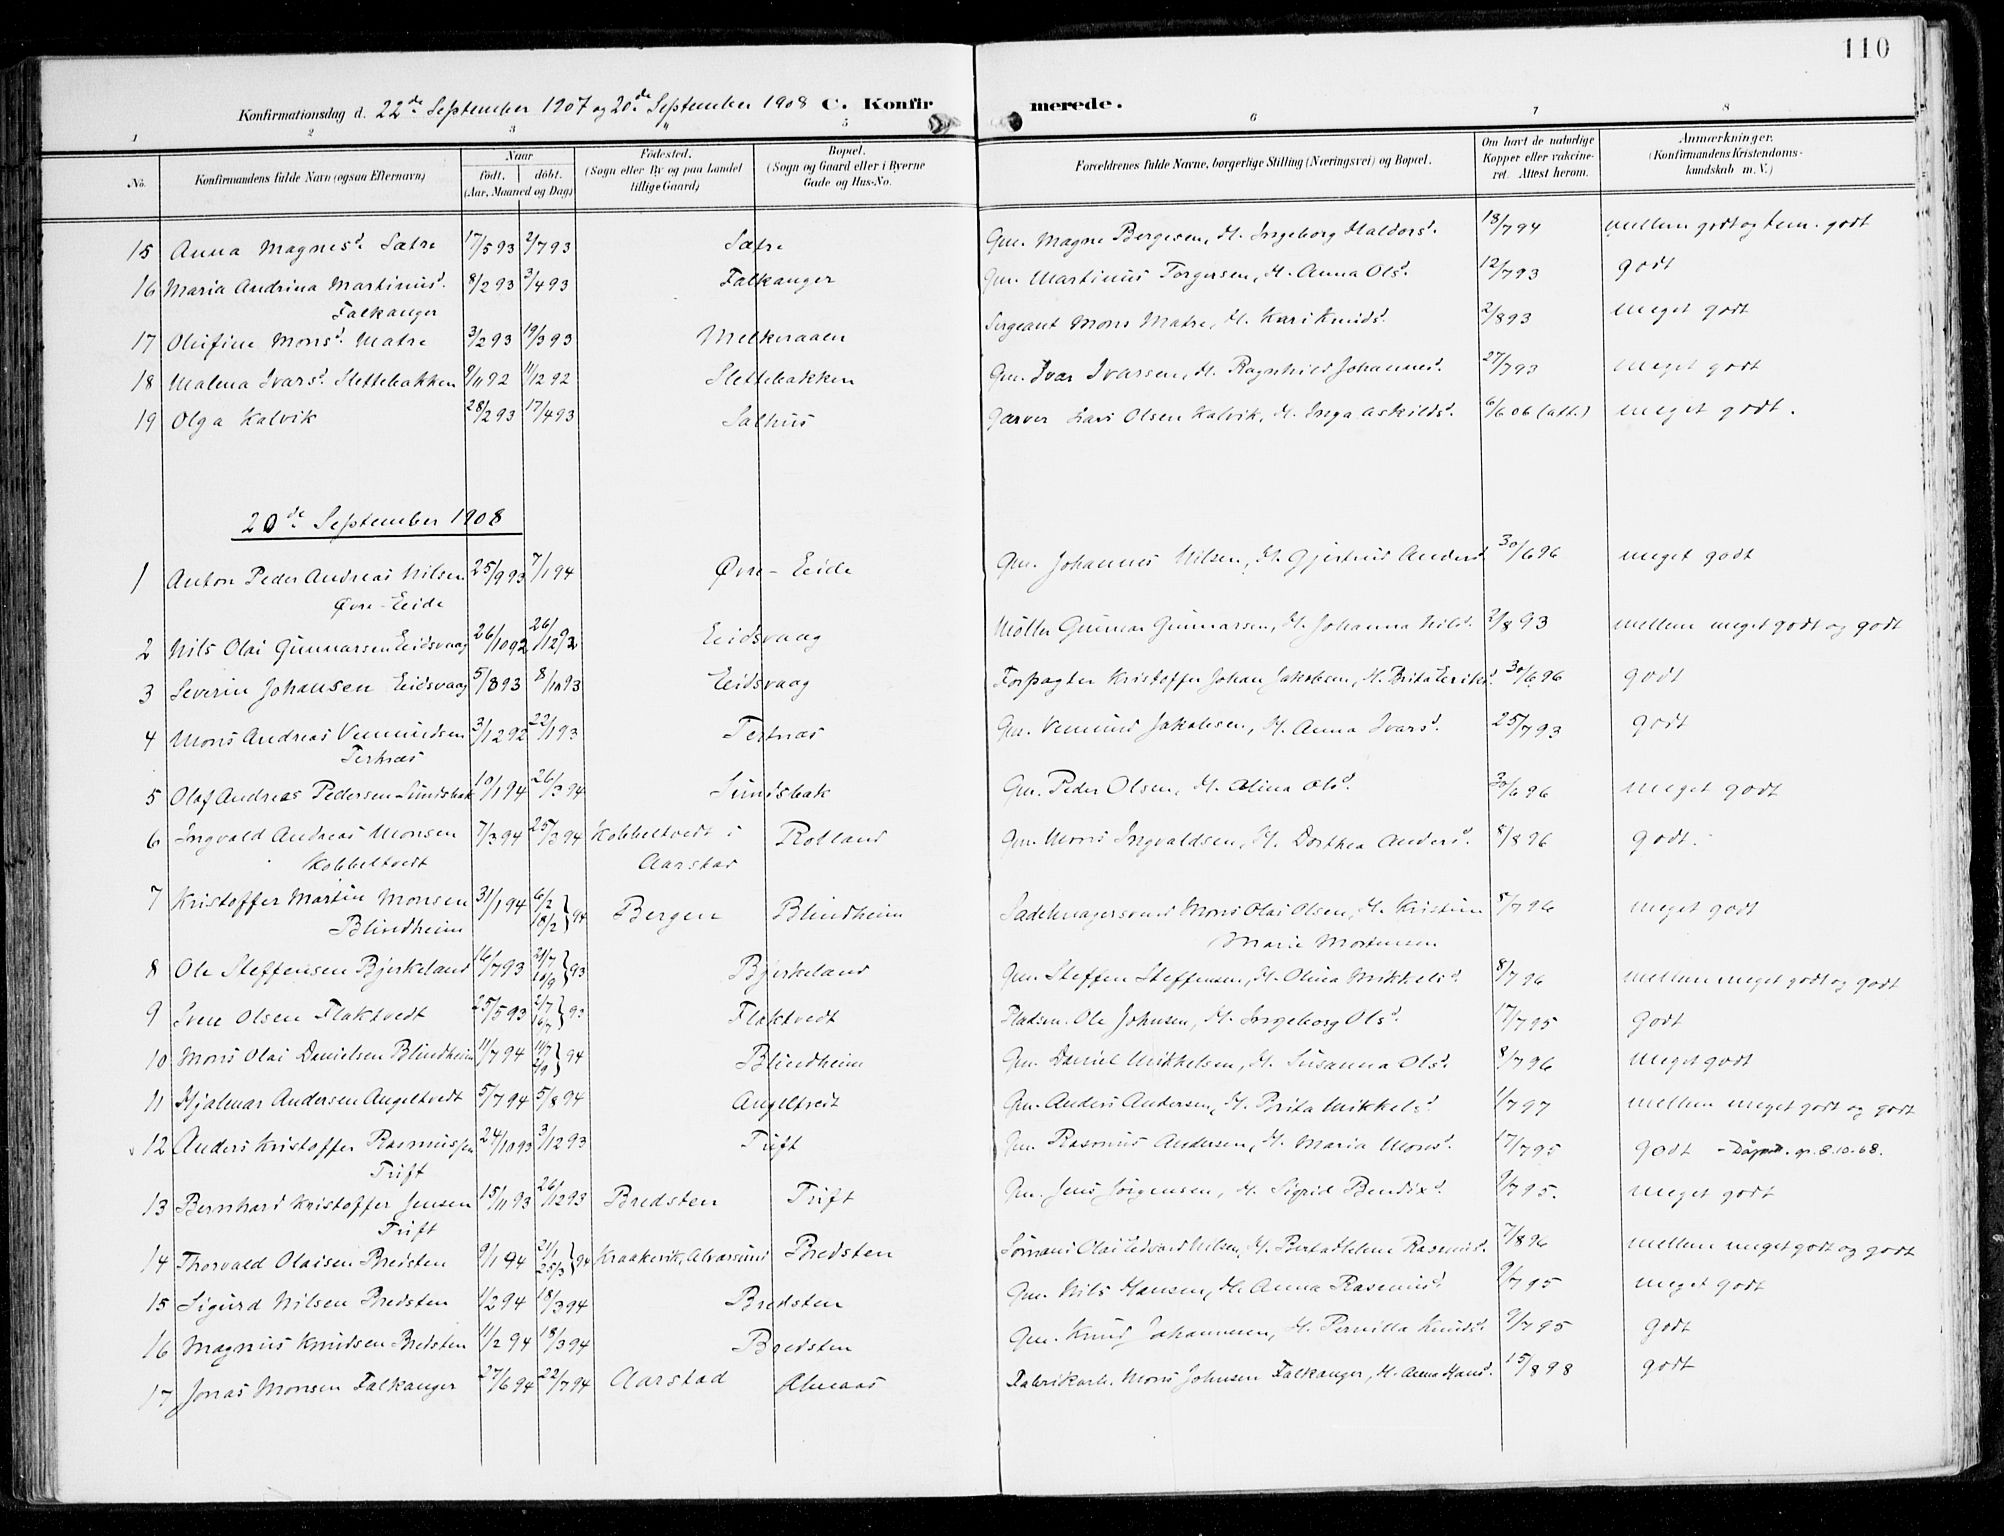 110
Konfirmationsdag d. 22de September 1907 og 20de September 1908 C. Konfirmerede.
1 2 3 4 5 6 7 8
No. Konfirmandens fulde Navn (ogsaa Efternavn) Naar født. døbt. (Aar, Maaned og Dag) Fødested. (Sogn eller By og paa Landet tillige Gaard) Bopæl. (Sogn og Gaard eller i Byerne Gade og Hus-No. Forældrenes fulde Navne, borgerlige Stilling (Næringsvei) og Bopæl. Om havt de naturlige Kopper eller vakcineret. Attest herom. Anmærkninger. (Konfirmandens Kristendomskundskab m. V.)
15 Anna Magnesd. Sætre 17/5 93 2/7 93 Sætre Gm. Magne Børgesen, H. Ingeborg Haldorsd. 18/7 94 mellem godt og tem. godt
16 Maria Andrina Martinusd. 8/2 93 3/4 93 Falkanger Gm. Martinus Torgersen, H. Anna Olsd. 12/7 93 godt
Falkanger
17 Olufine Monsd. Matre 3/2 93 19/3 93 Melkeraaen Sergeant Mons Matre, H. Kari Knudsd. 2/8 93 meget godt
18 Malena Ivarsd. Slettebakken 9/11 92 11/12 92 Slettebakken Gm. Ivar Ivarsen, H. Ragnhild Johannesd. 27/7 93 meget godt
19 Olga Kalvik 28/2 93 17/4 93 Salhus Garver Lars Olsen Kalvik, H. Inga Askildsd. 6/6 06 (att.) meget godt.
20de September 1908
1 Anton Peder Andreas Nilsen 25/9 93 7/1 94 Øvre-Eide Gm. Johannes Nilsen, H. Gjertrud Andersd. 30/6 96 meget godt
Øvre-Eide
2 Nils Olai Gunnarsen Eidsvaag 26/10 92 26/12 92 Eidsvaag Møller Gunnar Gunnarsen, H. Johanna Nilsd. 2/8 93 mellem meget godt og godt
3 Severin Johansen Eidsvaag 5/8 93 8/10 93 Eidsvaag Forpagter Kristoffer Johan Jakobsen, H. Brita Eriksd. 30/6 96 godt
4 Mons Andreas Vemundsen 3/12 92 22/1 93 Tertnæs Gm. Vemund Jakobsen, H. Anna Ivarsd. 25/7 93 godt
Tertnæs
5 Olaf Andreas Pedersen Sundsbak 10/1 94 26/3 94 Sundsbak Gm. Peder Olsen, H. Alina Olsd. 30/6 96 meget godt
6 Ingvald Andreas Monsen 7/3 94 25/3 94 Kobbeltvedt i Rolland Gm. Mons Ingvaldsen, H. Dorthea Andersd. 8/8 96 godt.
Kobbeltvedt Aarstad
7 Kristoffer Martin Monsen 31/1 94 6/2 18/2 } 94 Bergen Blindheim Sadelmagersvend Mons Olai Olsen, H. Kristine 8/7 96 meget godt
Blindheim Marie Mortensen
8 Ole Steffensen Bjerkeland 16/7 93 21/7 10/9 } 93 Bjerkeland Gm. Steffen Steffensen, H. Olina Mikkelsd. 8/7 96 mellem meget godt og godt
9 Sven Olsen Flaktvedt 25/5 93 2/7 16/7 } 93 Flaktvedt Pladsm. Ole Johnsen, H. Ingeborg Olsd. 17/7 95 Godt
10 Mons Olai Danielsen Blindheim 11/7 94 94 Blindheim Gm. Daniel Mikkelsen, H. Susanna Olsd. 8/7 96 meget godt
11 Hjalmar Andersen Angeltvedt 5/7 94 5/8 94 Angeltvedt Gm. Anders Andersen, H. Brita Mikkelsd. 1/7 97 mellem meget godt og godt
12 Anders Kristoffer Rasmussen 24/10 93 3/12 93 Tuft Gm. Rasmus Andersen, H. Maria Monsd. 17/7 95 godt - 8.10.68.
Tuft
13 Bernhard Kristoffer Jensen 15/11 93 26/12 93 Bredsten Tuft Gm. Jens Jørgensen, H. Sigrid Bendixd. 9/7 95. meget godt
Tuft
14 Thorvald Olaisen Bredsten 9/1 94 21/1 25/3 } 94 Kraakevik, Alversund Bredsten Sømand Olai Edvard Nilsen, H. Berta Helene Rasmusd. 7/8 96 mellem meget godt og godt
15 Sigurd Nilsen Bredsten 1/2 94 18/3 94 Bredsten Gm. Nils Hansen, H. Anna Rasmusd. 9/7 95 meget godt
16 Magnus Knudsen Bredsten 11/2 94 18/3 94 Bredsten Gm. Knud Johannesen, H. Pernilla Knudsd. 9/7 95 godt
17 Jonas Monsen Falkanger 27/6 94 22/7 94 Aarstad Almaas Fabrikarb. Mons Johnsen Falkanger, H. Anna Hansd. 15/8 98 godt